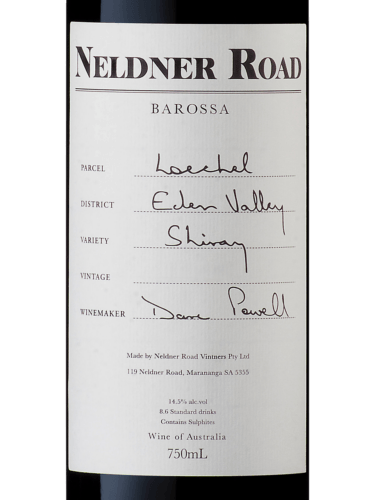 NELDNER ROAD
BAROSSA
PARCEL Loechel
DISTRICT Eden Valley
VARIETY Shiraz
VINTAGE
WINEMAKER Dave Powell
Made by Neldner Road Vintners Pty Ltd
119 Neldner Road, Marananga SA 5355
14.5% alc.vol
8.6 Standard drinks
Contains Sulphites
Wine of Australia
750mL